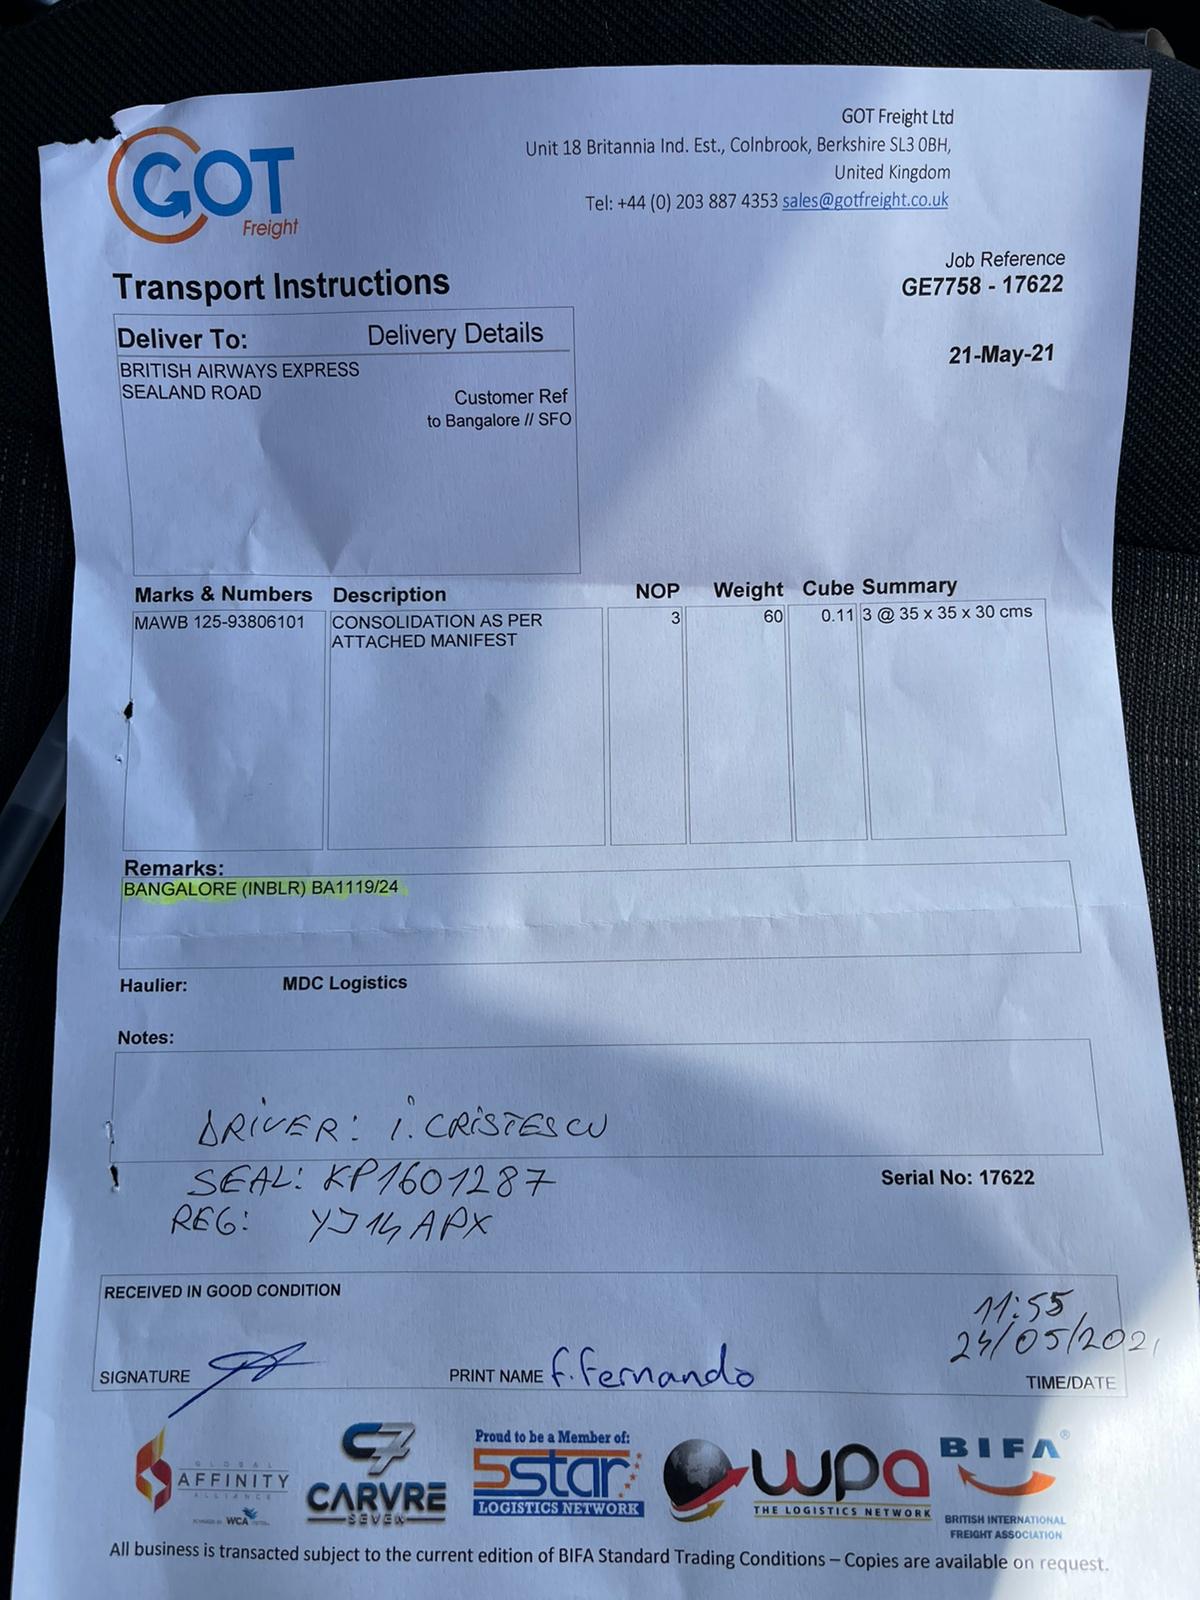 GOT
Freight
GOT Freight Ltd
Unit 18 Britannia Ind. Est., Colnbrook, Berkshire SL3 0BH,
United Kingdom
Tel: +44 (0) 203 887 4353 sales@gotfreight.co.uk
Job Reference
GE7758 - 17622
Transport Instructions
21-May-21
Deliver To: Delivery Details
BRITISH AIRWAYS EXPRESS
SEALAND ROAD
Customer Ref
to Bangalore // SFO
Marks & Numbers Description NOP Weight Cube Summary
MAWB 125-93806101 CONSOLIDATION AS PER 3 60 0.11 3 @ 35 x 35 x 30 cms
ATTACHED MANIFEST
Remarks:
BANGALORE (INBLR) BA1119/24
Haulier: MDC Logistics
Notes:
DRIVER: i. CRISTESCU
SEAL: KP1601287
Serial No: 17622
REG: YJ14 APX
RECEIVED IN GOOD CONDITION
11:55
24/05/2021
SIGNATURE PRINT NAME f. fernando TIME/DATE
GLOBAL
AFFINITY
ALLIANCE
WCA
CARVRE
SEVEN
Proud to be a Member of:
5star
LOGISTICS NETWORK
wpa
THE LOGISTICS NETWORK
BIFA®
BRITISH INTERNATIONAL
FREIGHT ASSOCIATION
All business is transacted subject to the current edition of BIFA Standard Trading Conditions – Copies are available on request.